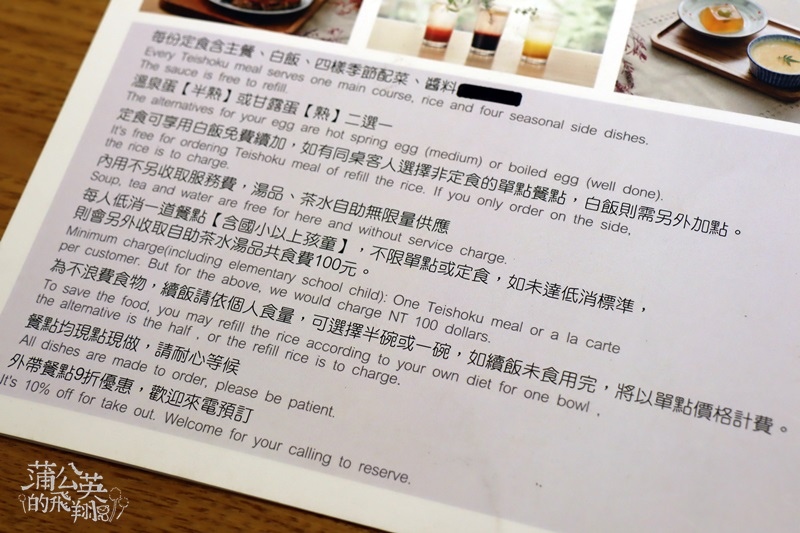 每份定食含主餐、白飯、四樣季節配菜、醬料
Every Teishoku meal serves one main course, rice and four seasonal side dishes.
The sauce is free to refill.
溫泉蛋【半熟】或甘露蛋【熟】二選一
The alternatives for your egg are hot spring egg (medium) or boiled egg (well done).
定食可享用白飯免費續加，如有同桌客人選擇非定食的單點餐點，白飯則需另外加點。
It's free for ordering Teishoku meal of refill the rice. If you only order on the side,
the rice is to charge.
內用不另收取服務費，湯品、茶水自助無限量供應
Soup, tea and water are free for here and without service charge.
每人低消一道餐點【含國小以上孩童】，不限單點或定食，如未達低消標準，
則會另外收取自助茶水湯品共食費100元。
Minimum charge(including elementary school child): One Teishoku meal or a la carte
per customer. But for the above, we would charge NT 100 dollars.
為不浪費食物，續飯請依個人食量，可選擇半碗或一碗，如續飯未食用完，將以單點價格計費。
To save the food, you may refill the rice according to your own diet for one bowl ,
the alternative is the half , or the refill rice is to charge.
餐點均現點現做，請耐心等候
All dishes are made to order, please be patient.
外帶餐點9折優惠，歡迎來電預訂
It's 10% off for take out. Welcome for your calling to reserve.
蒲公英
的飛翔